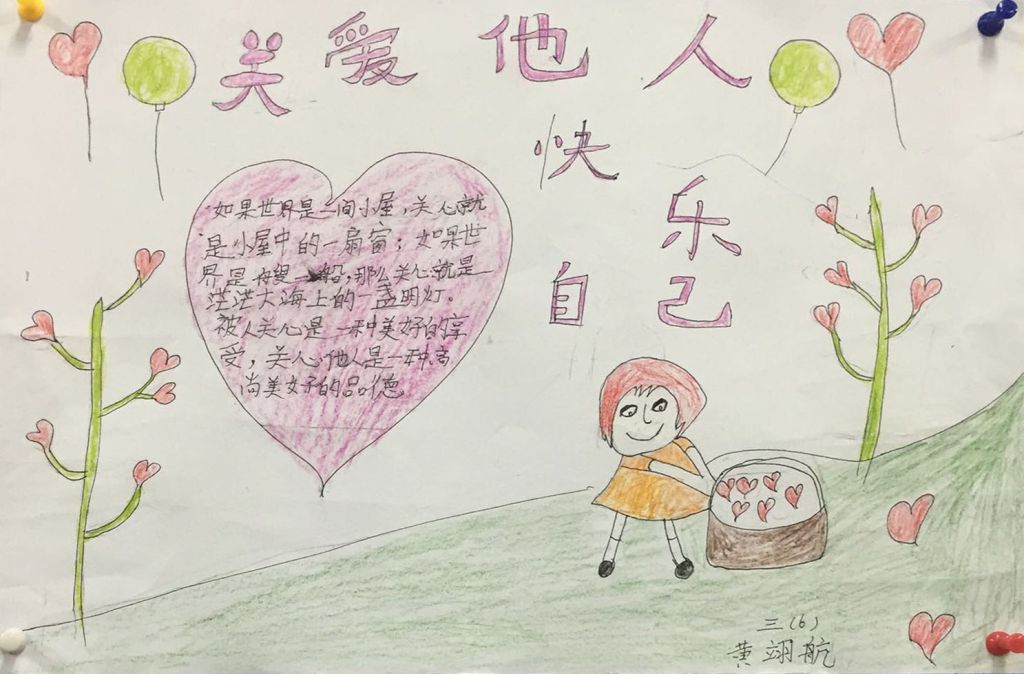 关爱他人
快乐
自己
如果世界是一间小屋，关心就
是小屋中的一扇窗；如果世
界是艘一船，那么关心就是
茫茫大海上的一盏明灯。
被人关心是一种美好的享
受，关心他人是一种高
尚美好的品德
三(6)
黄翊航